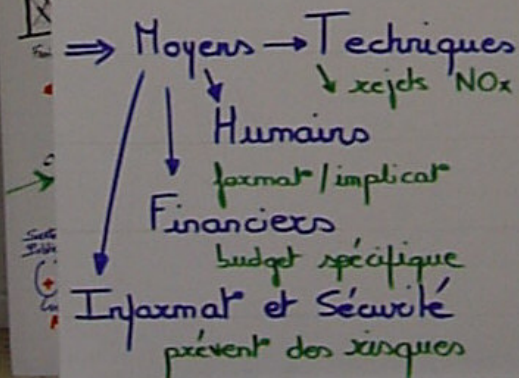 ⇒ Moyens → Techniques
↘ rejets NOx
Humains
format°/implicat°
Financiers
budget spécifique
Informat° et Sécurité
prévent° des risques